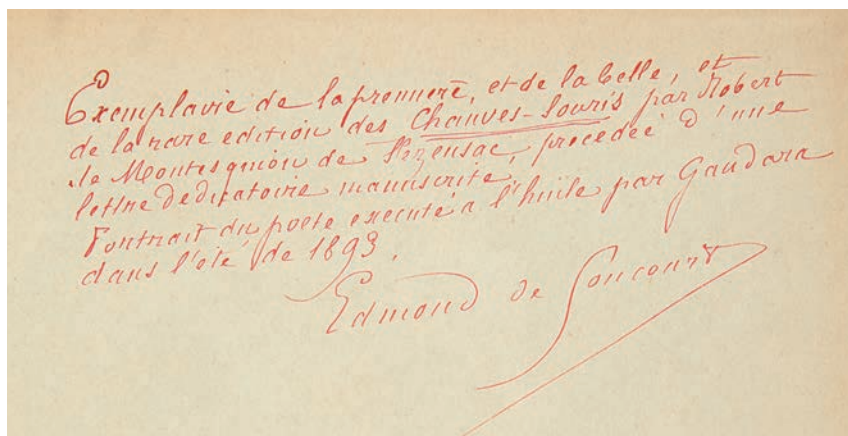 Exemplaire de la première, et de la belle, et
de la rare edition des Chauves-Souris par Robert
de Montesquiou de Fezensac, precedée d'une
lettre dedicatoire manuscrite,
Portrait du poete executé a l'huile par Gandara
dans l'été de 1893.
Edmond de Goncourt